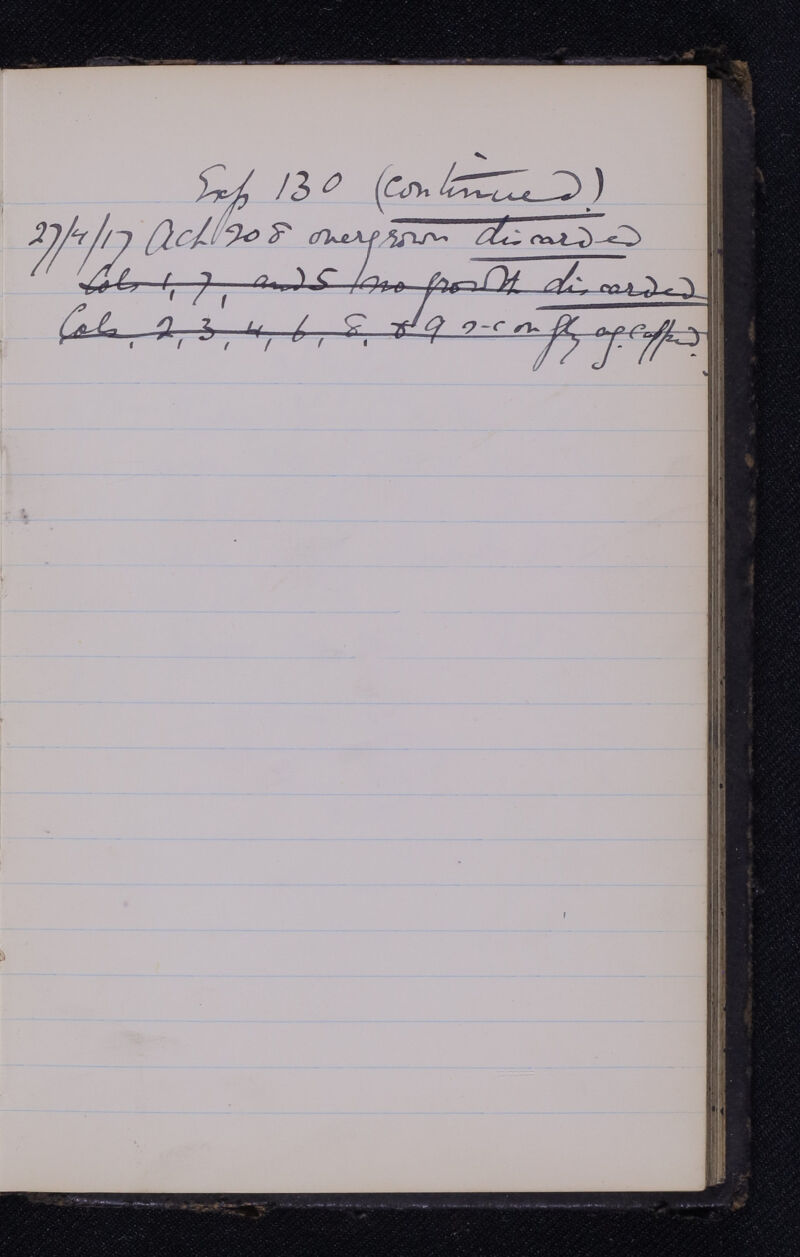 Exp 130 (continued)
27/4/17 Ach 208 overgrown discarded
Cols 1, 7, and 5 no growth discarded
Cols, 2, 3, 4, 6, 8, & 9 s-c on gly ag. capped.